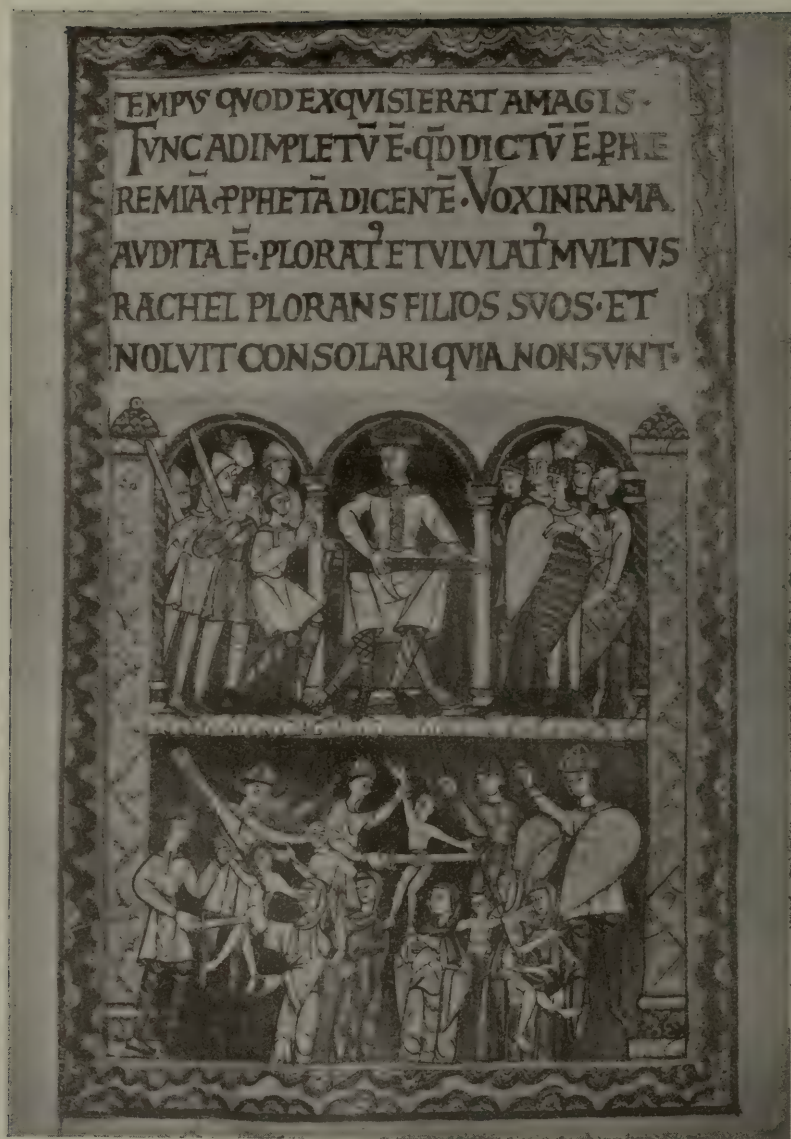 TEMPVS QVOD EXQVISIERAT A MAGIS·
TVNC ADIMPLETV̄ Ē·QD̄ DICTV̄ Ē·P̱ HIE
REMIĀ·PPHETĀ DICENTĒ·VOX IN RAMA
AVDITA Ē·PLORAT᾿ ET VLVLAT᾿ MVLTVS
RACHEL PLORANS FILIOS SVOS·ET
NOLVIT CONSOLARI QVIA NON SVNT·